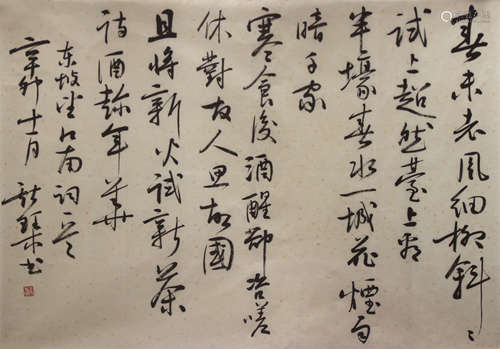 春未老風細柳斜〻
試上超然臺上看
半壕春水一城花煙雨
暗千家
寒食後酒醒卻咨嗟
休對故人思故國
且將新火試新茶
詩酒趁年華
东坡望江南詞一首
辛卯十一月 書